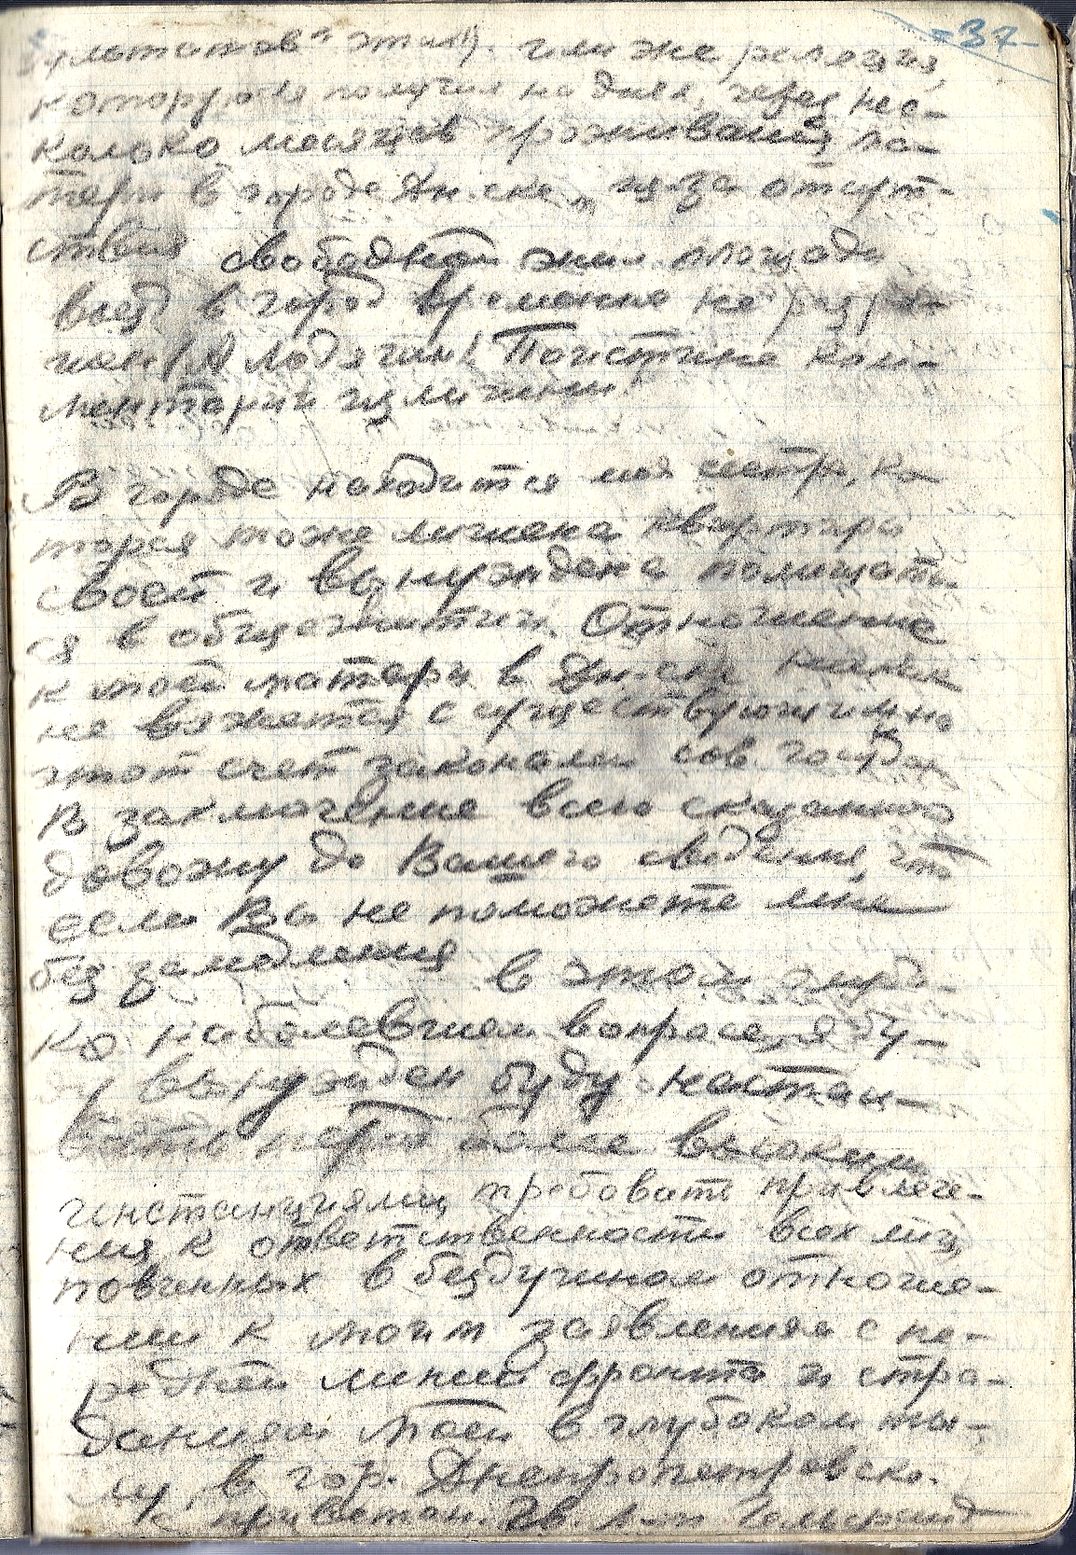 -37-
этим). или же резолюция,
которую я получил на днях, через нес-
колько месяцев проживания ма-
тери в городе Дн-ске „из-за отсут-
ствия свободной жил площади
въезд в город временно не разре-
шен! А людям! Поистине ком-
ментарии излишни!
В городе находится моя сестра, ко-
торая тоже лишена квартиры
своей и вынуждена помещать-
ся в общежитии. Отношение
к моей матери в Дн-ске никак
не вяжется с существующими на
этот счет законами сов. госуд.
В заключение всего сказанного
довожу до Вашего сведения, что
если Вы не поможете мне
без замедления в этом глубо-
ко наболевшем вопросе, я бу-
вынужден буду настаи-
вать перед более высокими
инстанциями, требовать привлече-
ния к ответственности всех лиц,
повинных в бездушном отноше-
нии к моим заявлениям с пе-
редней линии фронта и стра-
даниям моей в глубоком ты-
лу, в гор. Днепропетровске.
К приветом. Гв. л-т Гельфанд